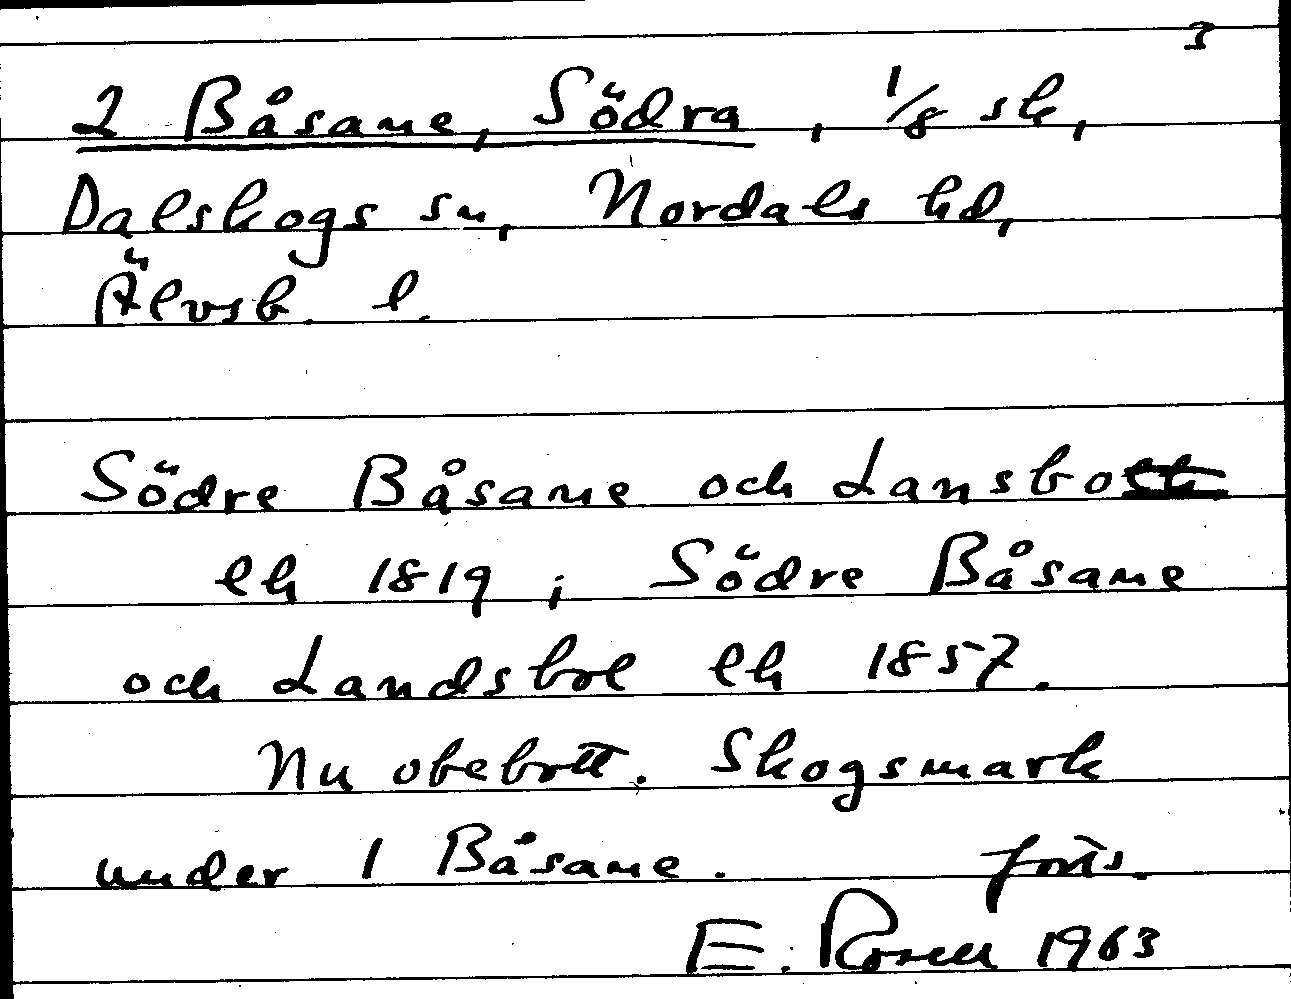 3
2 Båsane, Södra, 1/8 sk,
Dalskogs sn, Nordals hd,
Älvsb. l.
Södre Båsane och Lansbo
eh 1819; Södre Båsane
och Landsbol eh 1857.
Nu obebott. Skogsmark
under 1 Båsane. forts.
E. Rosell 1963